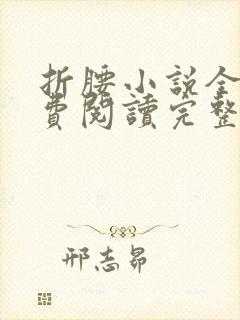 折腰小說全
費閱讀完整
邢志昂